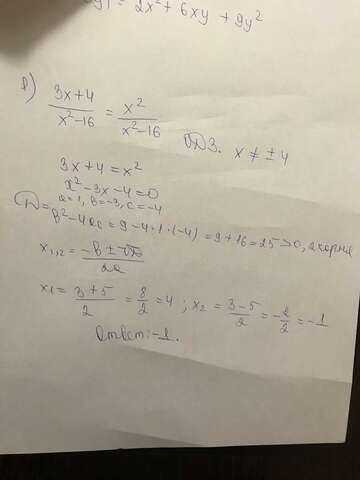 = 2x² + 6xy + 9y²
в) (3x+4)/(x²-16) = x²/(x²-16) ОДЗ. x ≠ ±4
3x+4=x²
x²-3x-4=0
a=1, в=-3, c=-4
D=в²-4ac=9-4·1·(-4)=9+16=25>0, 2 корня
x₁,₂=(-в±√D)/2a
x₁=(3+5)/2=8/2=4; x₂=(3-5)/2=-2/2=-1
Ответ:-1.